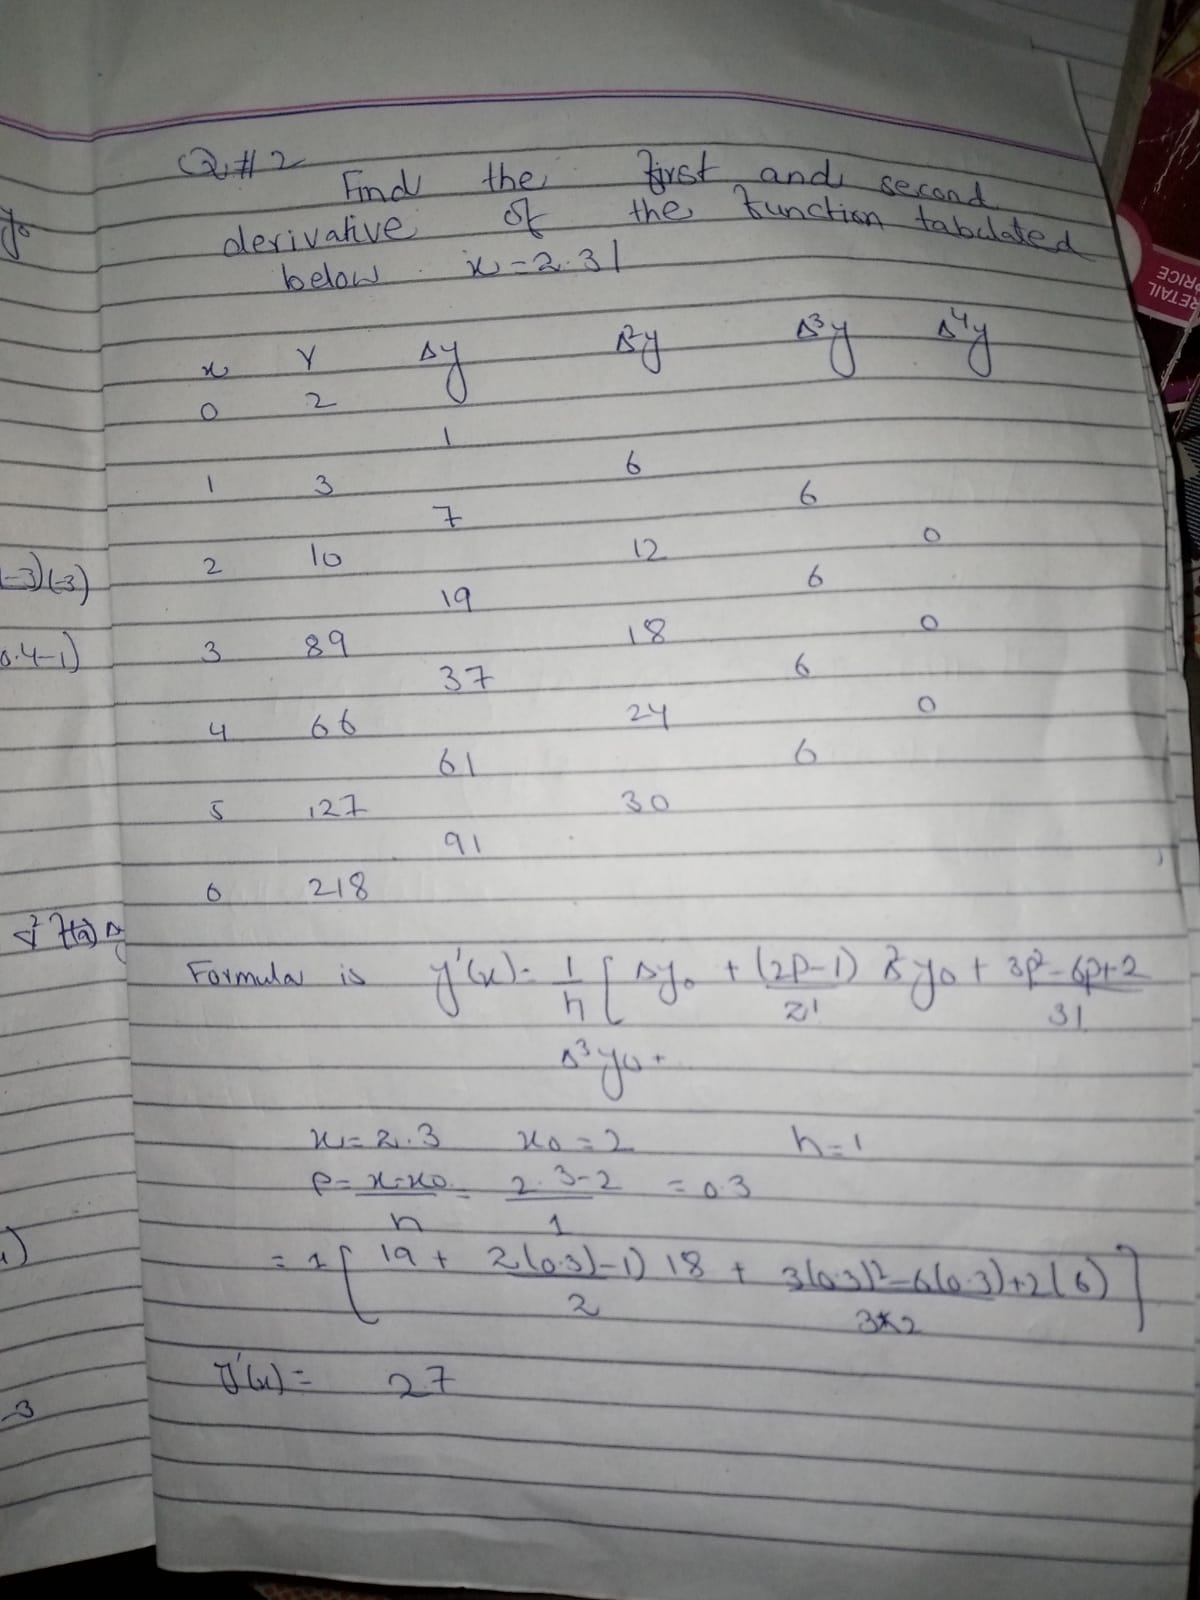 Q.#2
Find the first and second
derivative of the function tabulated
below. x=2.31
x Y Δy Δ²y Δ³y Δ⁴y
0 2
1
1 3 6
7 6
2 10 12 0
19 6
3 89 18 0
37 6
4 66 24 0
61 6
5 127 30
91
6 218
Formula is y'(x)= 1/h [ Δy₀ + (2P-1)/2! Δ²y₀ + 3p²-6p+2/3!
Δ³y₀ +
x=2.3 x₀=2 h=1
P= x-x₀/h = 2.3-2/1 = 0.3
= 1 [ 19 + 2(0.3)-1)/2 18 + 3(0.3)²-6(0.3)+2(6)/3*2 ]
y'(x)= 27
(-3)(-3)
0.4-1)
-3
RETAIL
PRICE